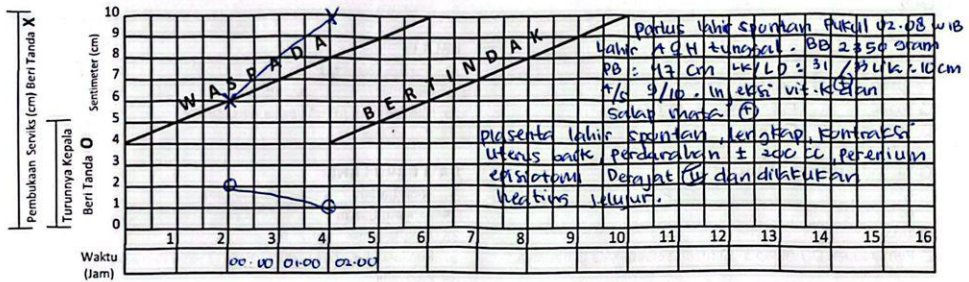 Pembukaan Serviks (cm) Beri Tanda X
Turunnya Kepala
Beri Tanda O
Sentimeter (cm)
10
9
8
7
6
5
4
3
2
1
0
WASPADA
BERTINDAK
Partus lahir spontan Pukul 02.08 WIB
Lahir tunggal. BB 2350 gram
PB : 47 cm LK/LD : 31/
A/S 9/10. vit.K dan
Salap mata (+)
plasenta lahir spontan, lengkap, kontraksi
uterus baik, perdarahan ± 200 cc, perenium
episiotomi Derajat dan dilakukan
heating jelujur.
1 2 3 4 5 6 7 8 9 10 11 12 13 14 15 16
Waktu
(Jam)
00.00 01.00 02.00